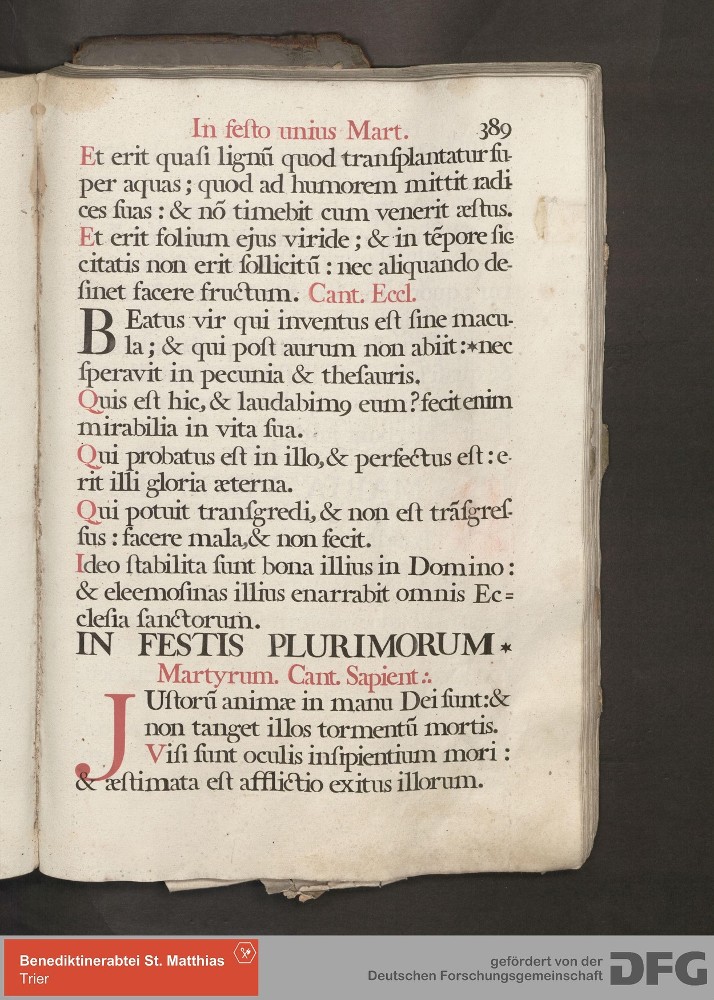 In feſto unius Mart. 389
Et erit quaſi lignũ quod tranſplantatur ſu-
per aquas; quod ad humorem mittit radi-
ces ſuas: & nõ timebit cum venerit æſtus.
Et erit folium ejus viride; & in tẽpore ſic-
citatis non erit ſollicitũ: nec aliquando de-
ſinet facere fructum. Cant. Eccl.
BEatus vir qui inventus eſt ſine macu-
la; & qui poſt aurum non abiit:*nec
ſperavit in pecunia & theſauris.
Quis eſt hic, & laudabimꝰ eum? fecit enim
mirabilia in vita ſua.
Qui probatus eſt in illo, & perfectus eſt: e-
rit illi gloria æterna.
Qui potuit tranſgredi, & non eſt trãſgreſ-
ſus: facere mala, & non fecit.
Ideo ſtabilita ſunt bona illius in Domino:
& eleemoſinas illius enarrabit omnis Ec=
cleſia ſanctorum.
IN FESTIS PLURIMORUM *
Martyrum. Cant. Sapient∴
JUſtorũ animæ in manu Dei ſunt: &
non tanget illos tormentũ mortis.
Viſi ſunt oculis inſipientium mori:
& æſtimata eſt afflictio exitus illorum.
Benediktinerabtei St. Matthias
Trier
gefördert von der
Deutschen Forschungsgemeinschaft DFG